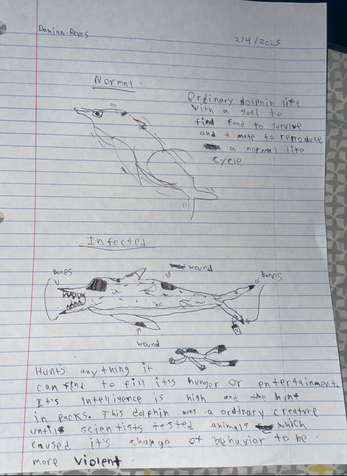 Damian Reyes
2/4/2025
Normal
Ordinary dolphin life
with a goal to
find food to survive
and a mate to reproduce
a normal life
cycle
Infected
Bones
wound
Bones
wound
Hunts anything it
can find to fill it's hunger or entertainment.
It's Intelligence is high and tho hunt
in packs. This dolphin was a ordinary creature
until scientists tested animals which
caused it's change of behavior to be
more violent.